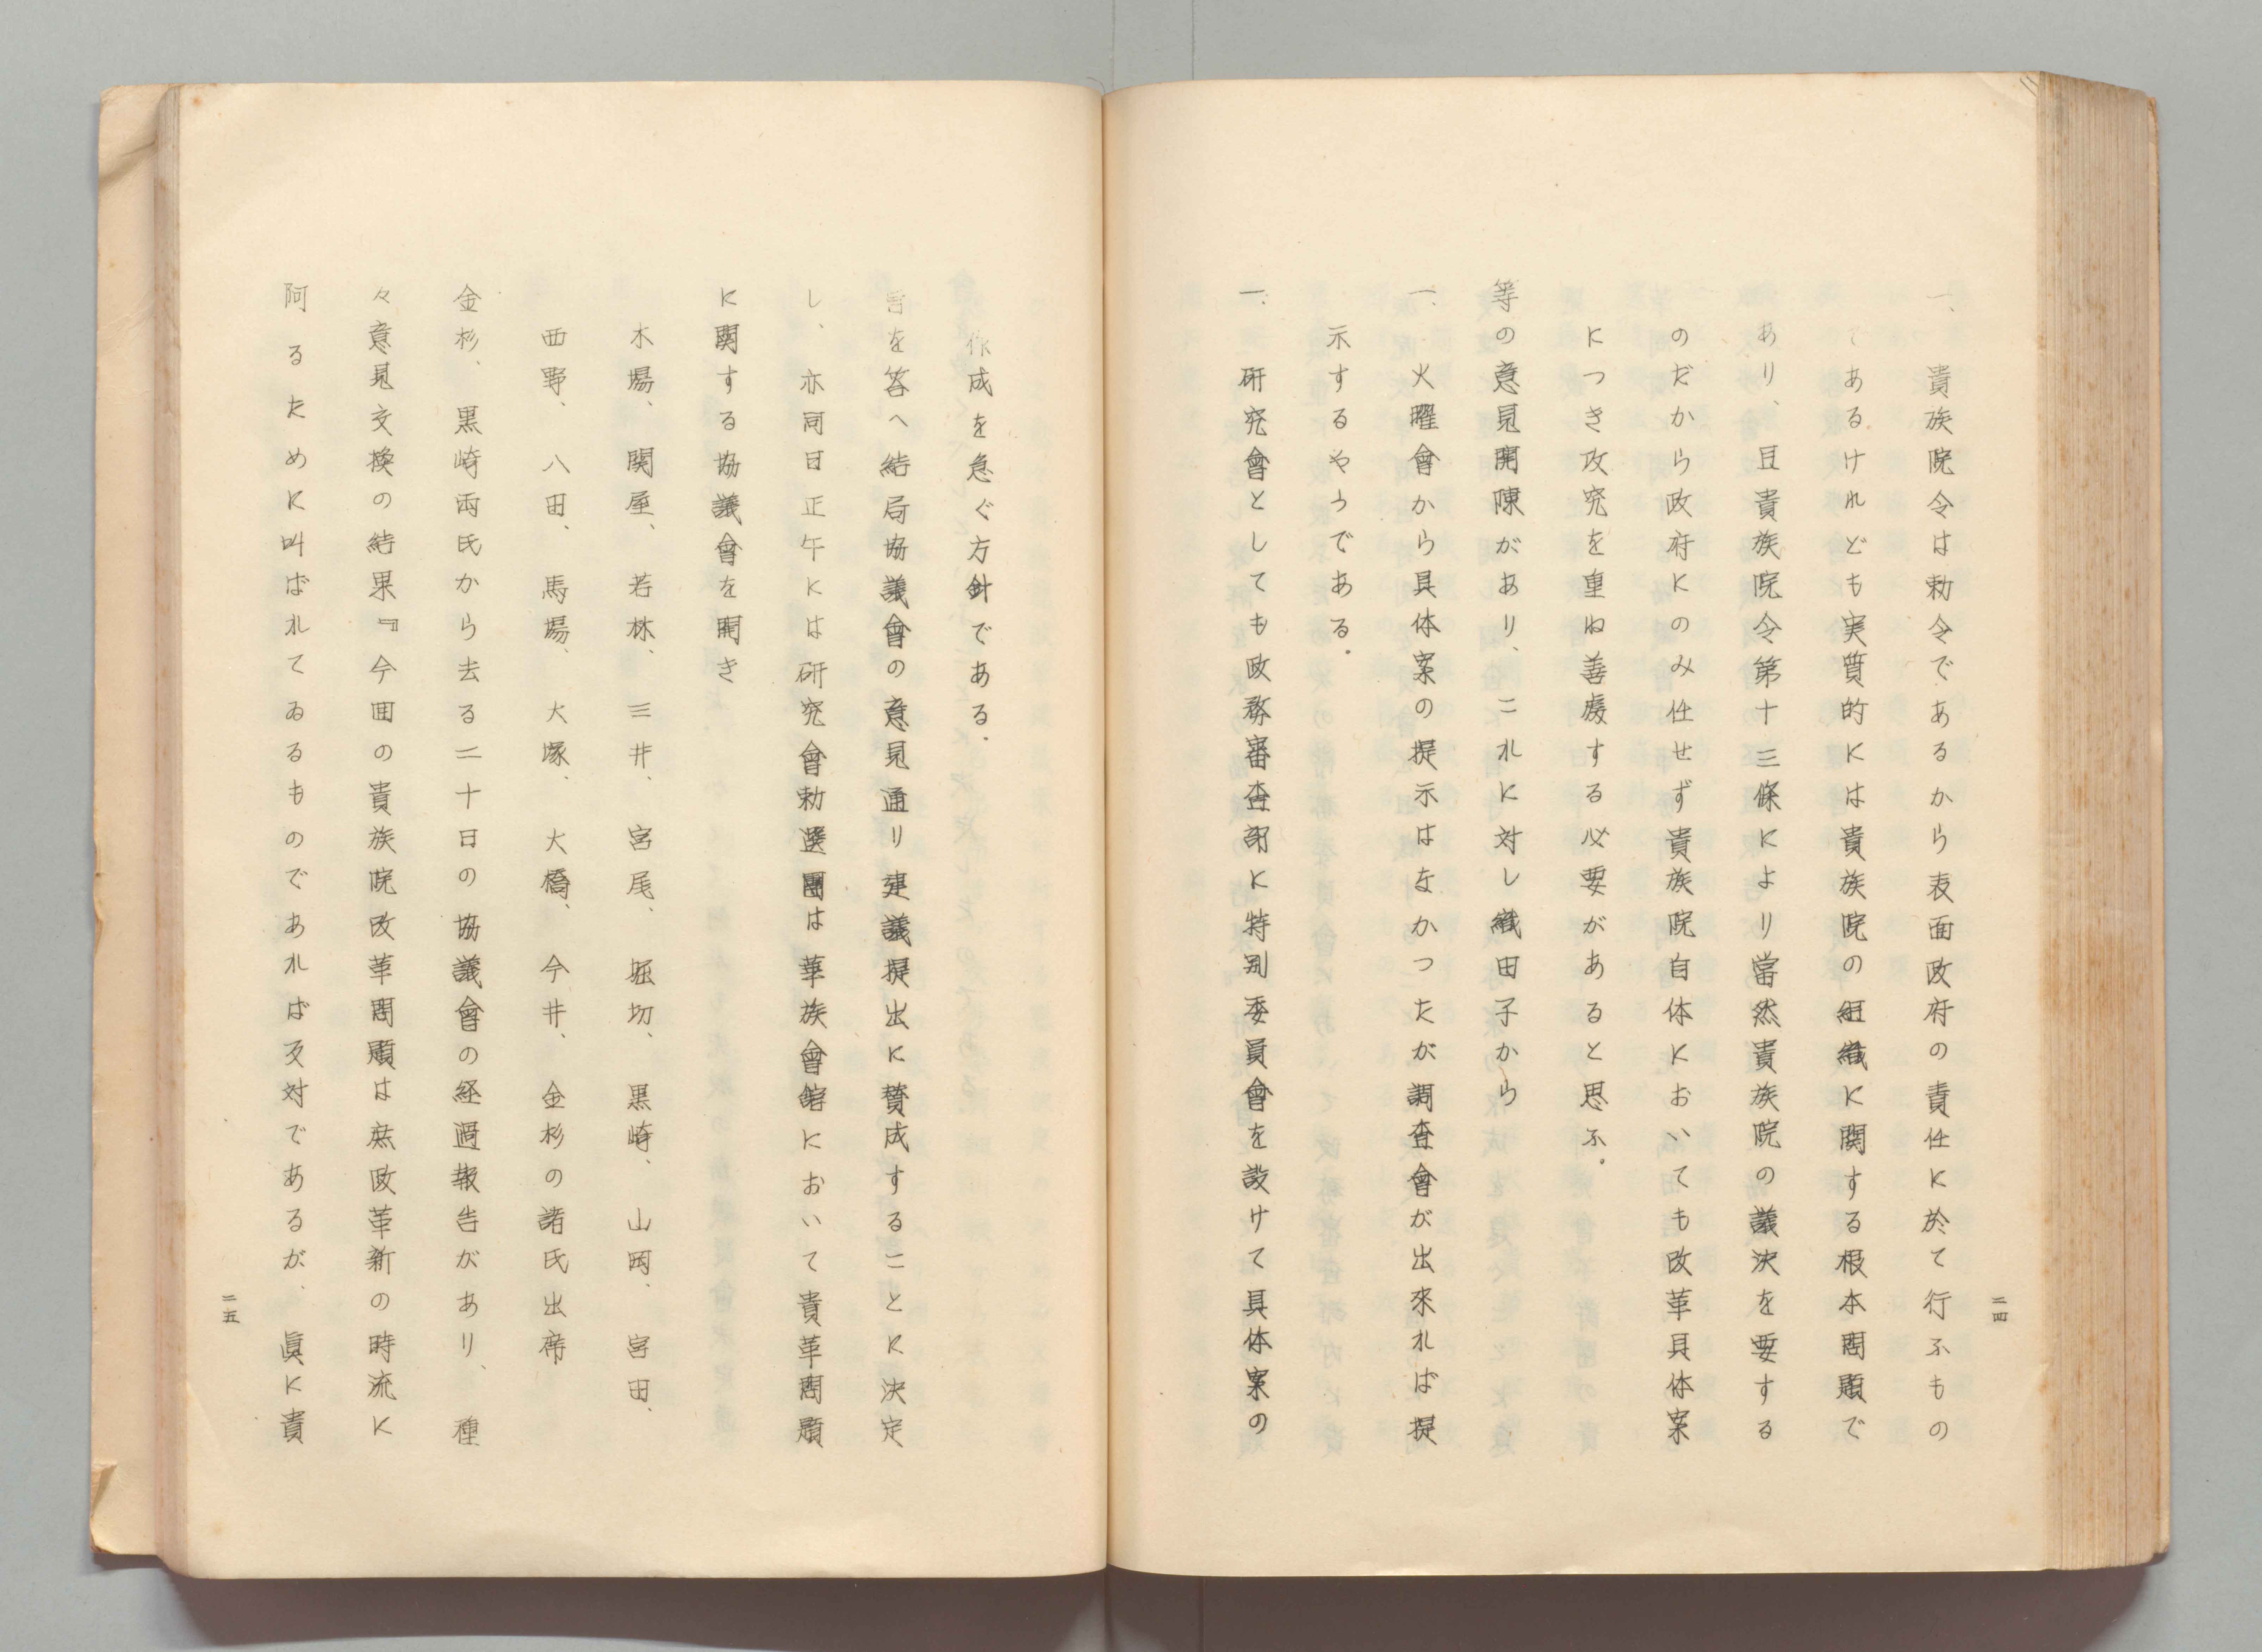 一、貴族院令は勅令であるから表面政府の責任に於て行ふもの
であるけれども実質的には貴族院の組織に関する根本問題で
あり、且貴族院令第十三條により當然貴族院の議決を要する
のだから政府にのみ任せず貴族院自体においても改革具体案
につき攻究を重ね善處する必要があると思ふ。
等の意見開陳があり、これに対し織田子から
一、火曜會から具体案の提示はなかつたが調査會が出來れば提
示するやうである。
一、研究會としても政務審査部に特別委員會を設けて具体案の
二四
作成を急ぐ方針である、
旨を答へ結局協議會の意見通り建議提出に賛成することに決定
し、亦同日正午には研究會勅選團は華族會館において貴革問題
に関する協議會を開き
木場、関屋、若林、三井、宮尾、堀切、黒崎、山岡、宮田、
西野、八田、馬場、大塚、大橋、今井、金杉の諸氏出席
金杉、黒崎両氏から去る二十日の協議會の経過報告があり、種
々意見交換の結果『今回の貴族院改革問題は庶政革新の時流に
阿るために叫ばれてゐるものであれば反対であるが、眞に貴
二五